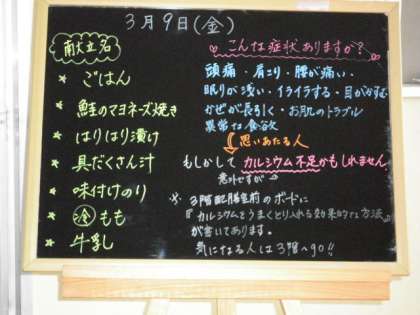 3月9日(金)
献立名
★ ごはん
★ 鮭のマヨネーズ焼き
★ はりはり漬け
★ 具だくさん汁
★ 味付けのり
★ 冷 もも
★ 牛乳
こんな症状ありますか?
頭痛・肩こり・腰が痛い・
眠りが浅い・イライラする・目がかすむ
かぜが長引く・お肌のトラブル
異常な食欲
思いあたる人
もしかして カルシウム不足かもしれません
意外ですが→
※ 3階配膳室前のボードに
『カルシウムをうまくとり入れる効果的な方法』
が書いてあります。
気になる人は3階へGO!!